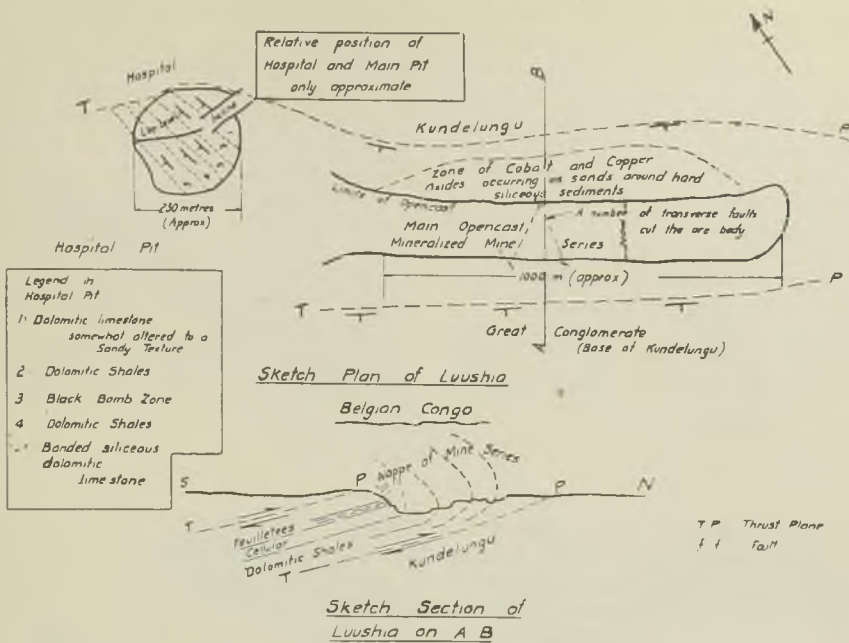 Relative position of
Hospital and Main Pit
only approximate
N
Hospital
T
Incline
250 metres
(Approx)
Hospital Pit
B
Kundelungu
P
Zone of Cobalt and Copper
Oxides occurring as sands around hard
siliceous sediments
Limits of Opencast
Main Opencast,
Mineralized Mine
Series
A number of transverse faults
cut the ore body
1000 m (approx)
P
T
Great Conglomerate
(Base of Kundelungu)
Legend in
Hospital Pit
1 Dolomitic limestone
somewhat altered to a
Sandy Texture
2 Dolomitic Shales
3 Black Bomb Zone
4 Dolomitic Shales
Banded siliceous
dolomitic
limestone
Sketch Plan of Luushia
Belgian Congo
S
P
Nappe of Mine Series
P
N
T
Feuilletees
Cellular
Dolomitic Shales
T
Kundelungu
T P Thrust Plane
Fault
Sketch Section of
Luushia on A B